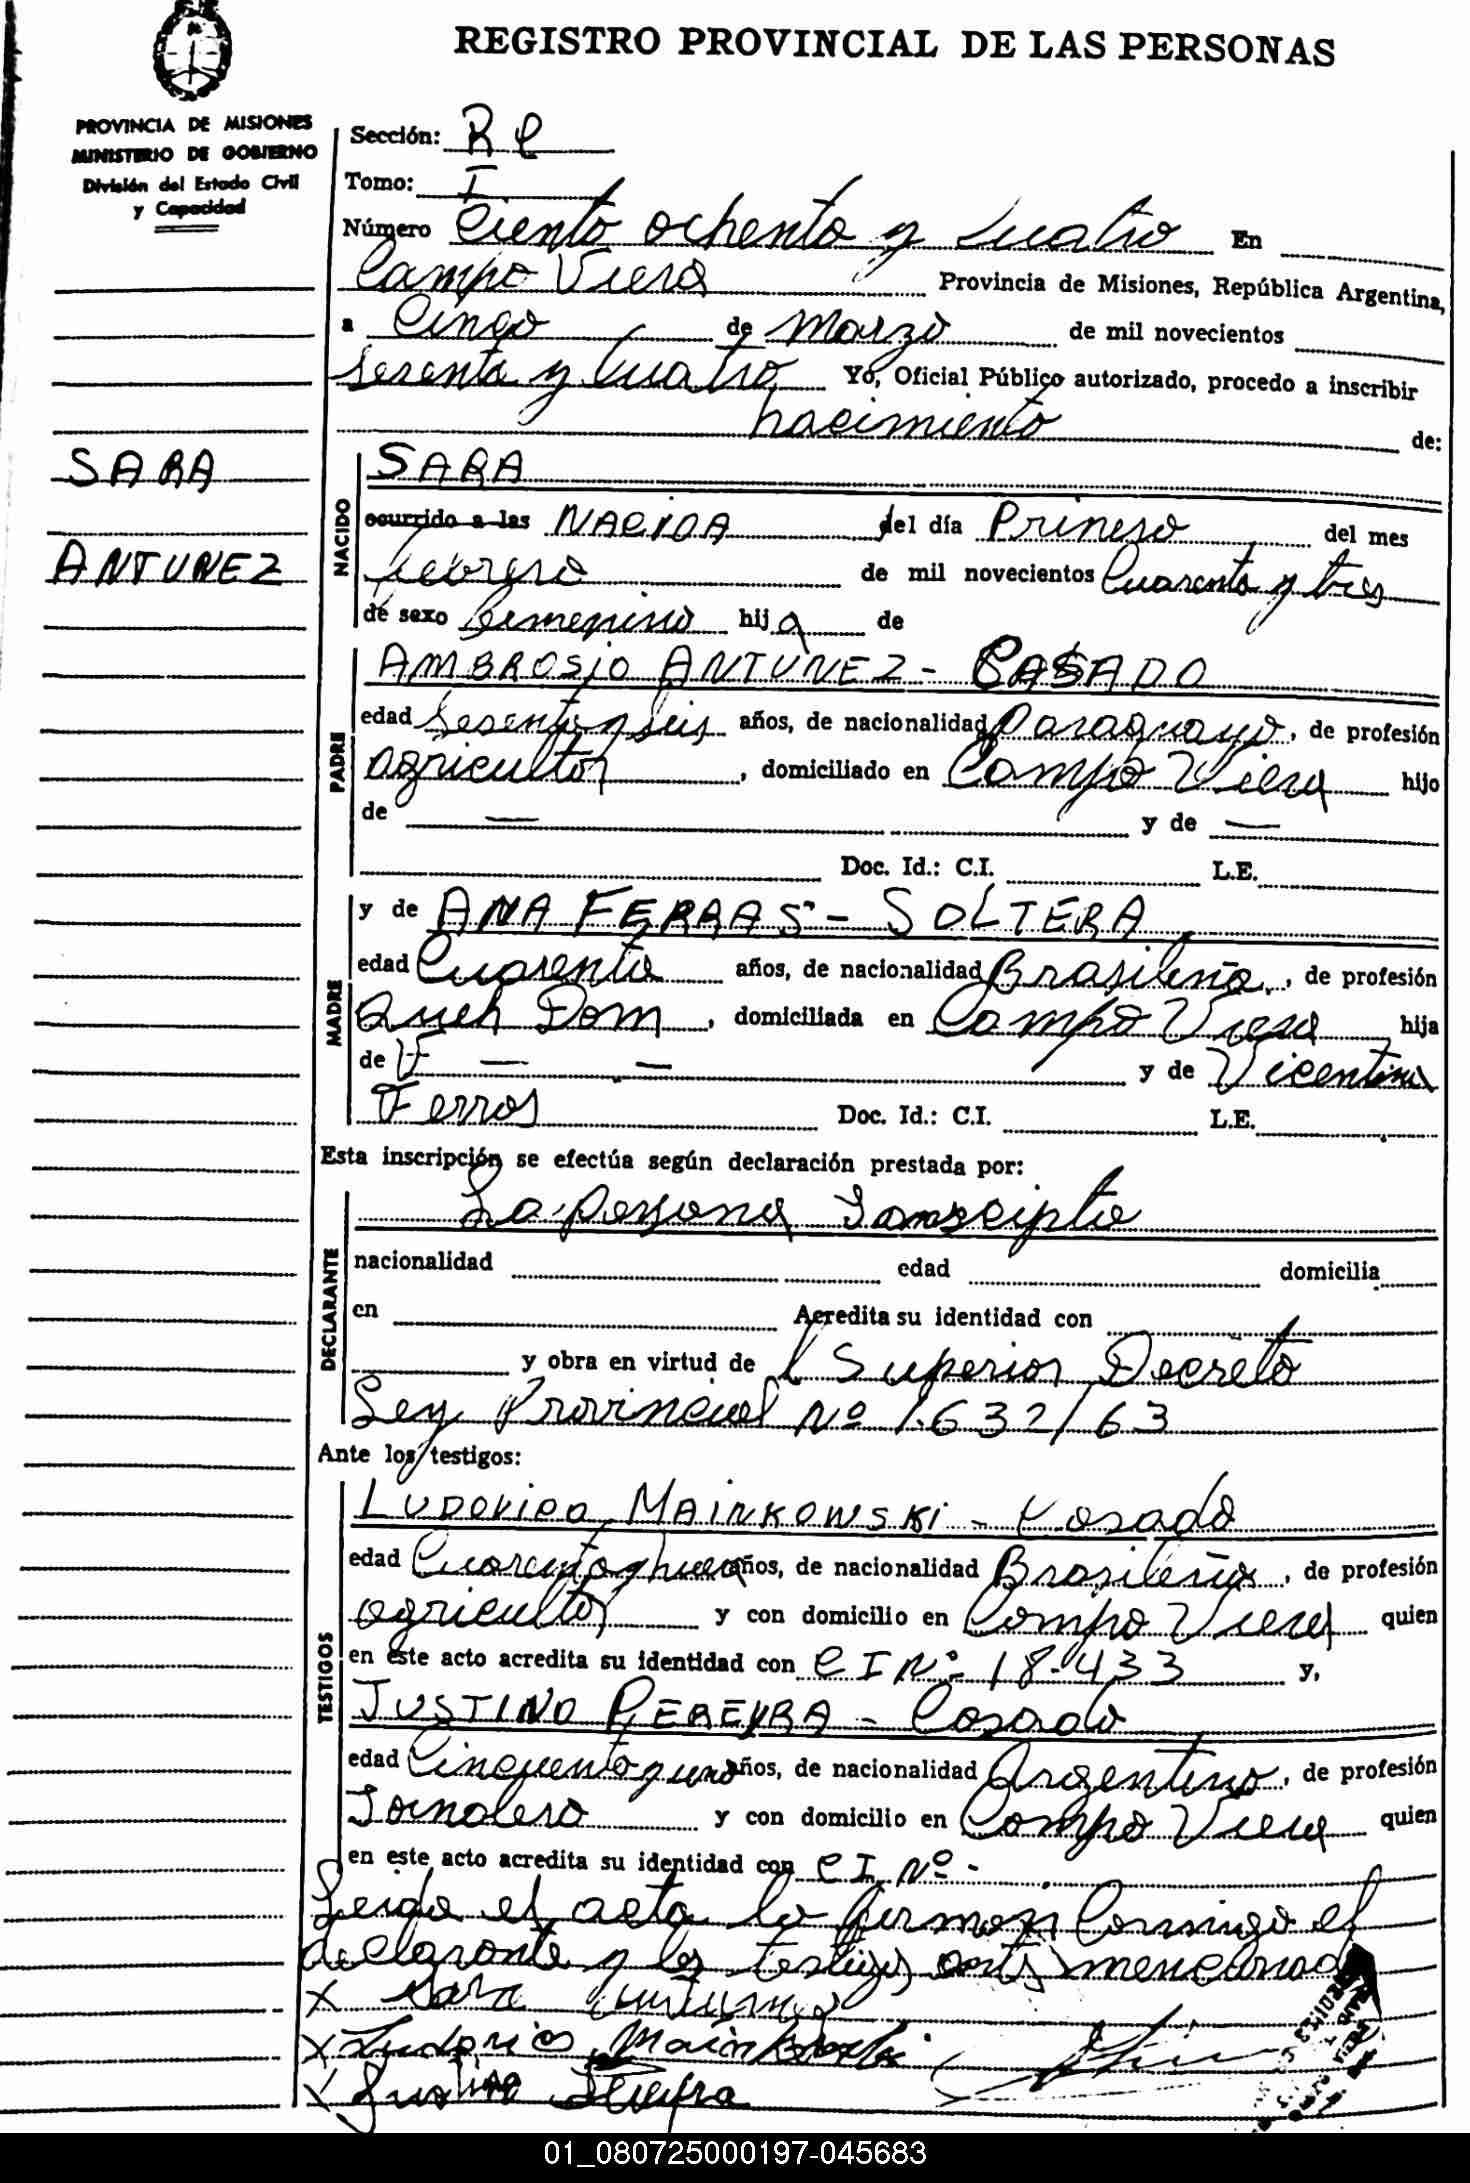 REGISTRO PROVINCIAL DE LAS PERSONAS
PROVINCIA DE MISIONES
MINISTERIO DE GOBIERNO
División del Estado Civil
y Capacidad
Sección: R e
Tomo: I
Número Ciento ochenta y cuatro En
Campo Viera Provincia de Misiones, República Argentina,
a Cinco de Marzo de mil novecientos
sesenta y cuatro Yo, Oficial Público autorizado, procedo a inscribir
nacimiento de:
SARA
ANTUNEZ
NACIDO
SARA
ocurrido a las NACIDA del día Primero del mes
febrero de mil novecientos Cuarenta y tres
de sexo femenino hija de
PADRE
AMBROSIO ANTUNEZ - CASADO
edad Sesenta y seis años, de nacionalidad Paraguayo, de profesión
agricultor, domiciliado en Campo Viera hijo
de — y de —
Doc. Id.: C.I. L.E.
MADRE
y de ANA FERRAS - SOLTERA
edad Cuarenta años, de nacionalidad Brasileña, de profesión
Queh Dom, domiciliada en Campo Viera hija
de — — y de Vicentina
Ferros Doc. Id.: C.I. L.E.
Esta inscripción se efectúa según declaración prestada por:
DECLARANTE
La persona
nacionalidad edad domicilia
en Acredita su identidad con
y obra en virtud de l Superior Decreto
Ley Provincial Nº 1.632/63
Ante los testigos:
TESTIGOS
LUDOVICO MAINKOWSKI - Casado
edad Cuarenta y nueve años, de nacionalidad Brasileña, de profesión
agricultor y con domicilio en Campo Viera quien
en este acto acredita su identidad con C I Nº 18.433 y,
JUSTINO PEREYRA - Casado
edad Cincuenta y uno años, de nacionalidad Argentino, de profesión
Jornalero y con domicilio en Campo Viera quien
en este acto acredita su identidad con C I. Nº -
Leida el acta la firman Conmigo el
declarante y los testigos antes mencionad
X Sara Antunez
X Ludovico Mainkowski
X Justino Pereyra
01_080725000197-045683